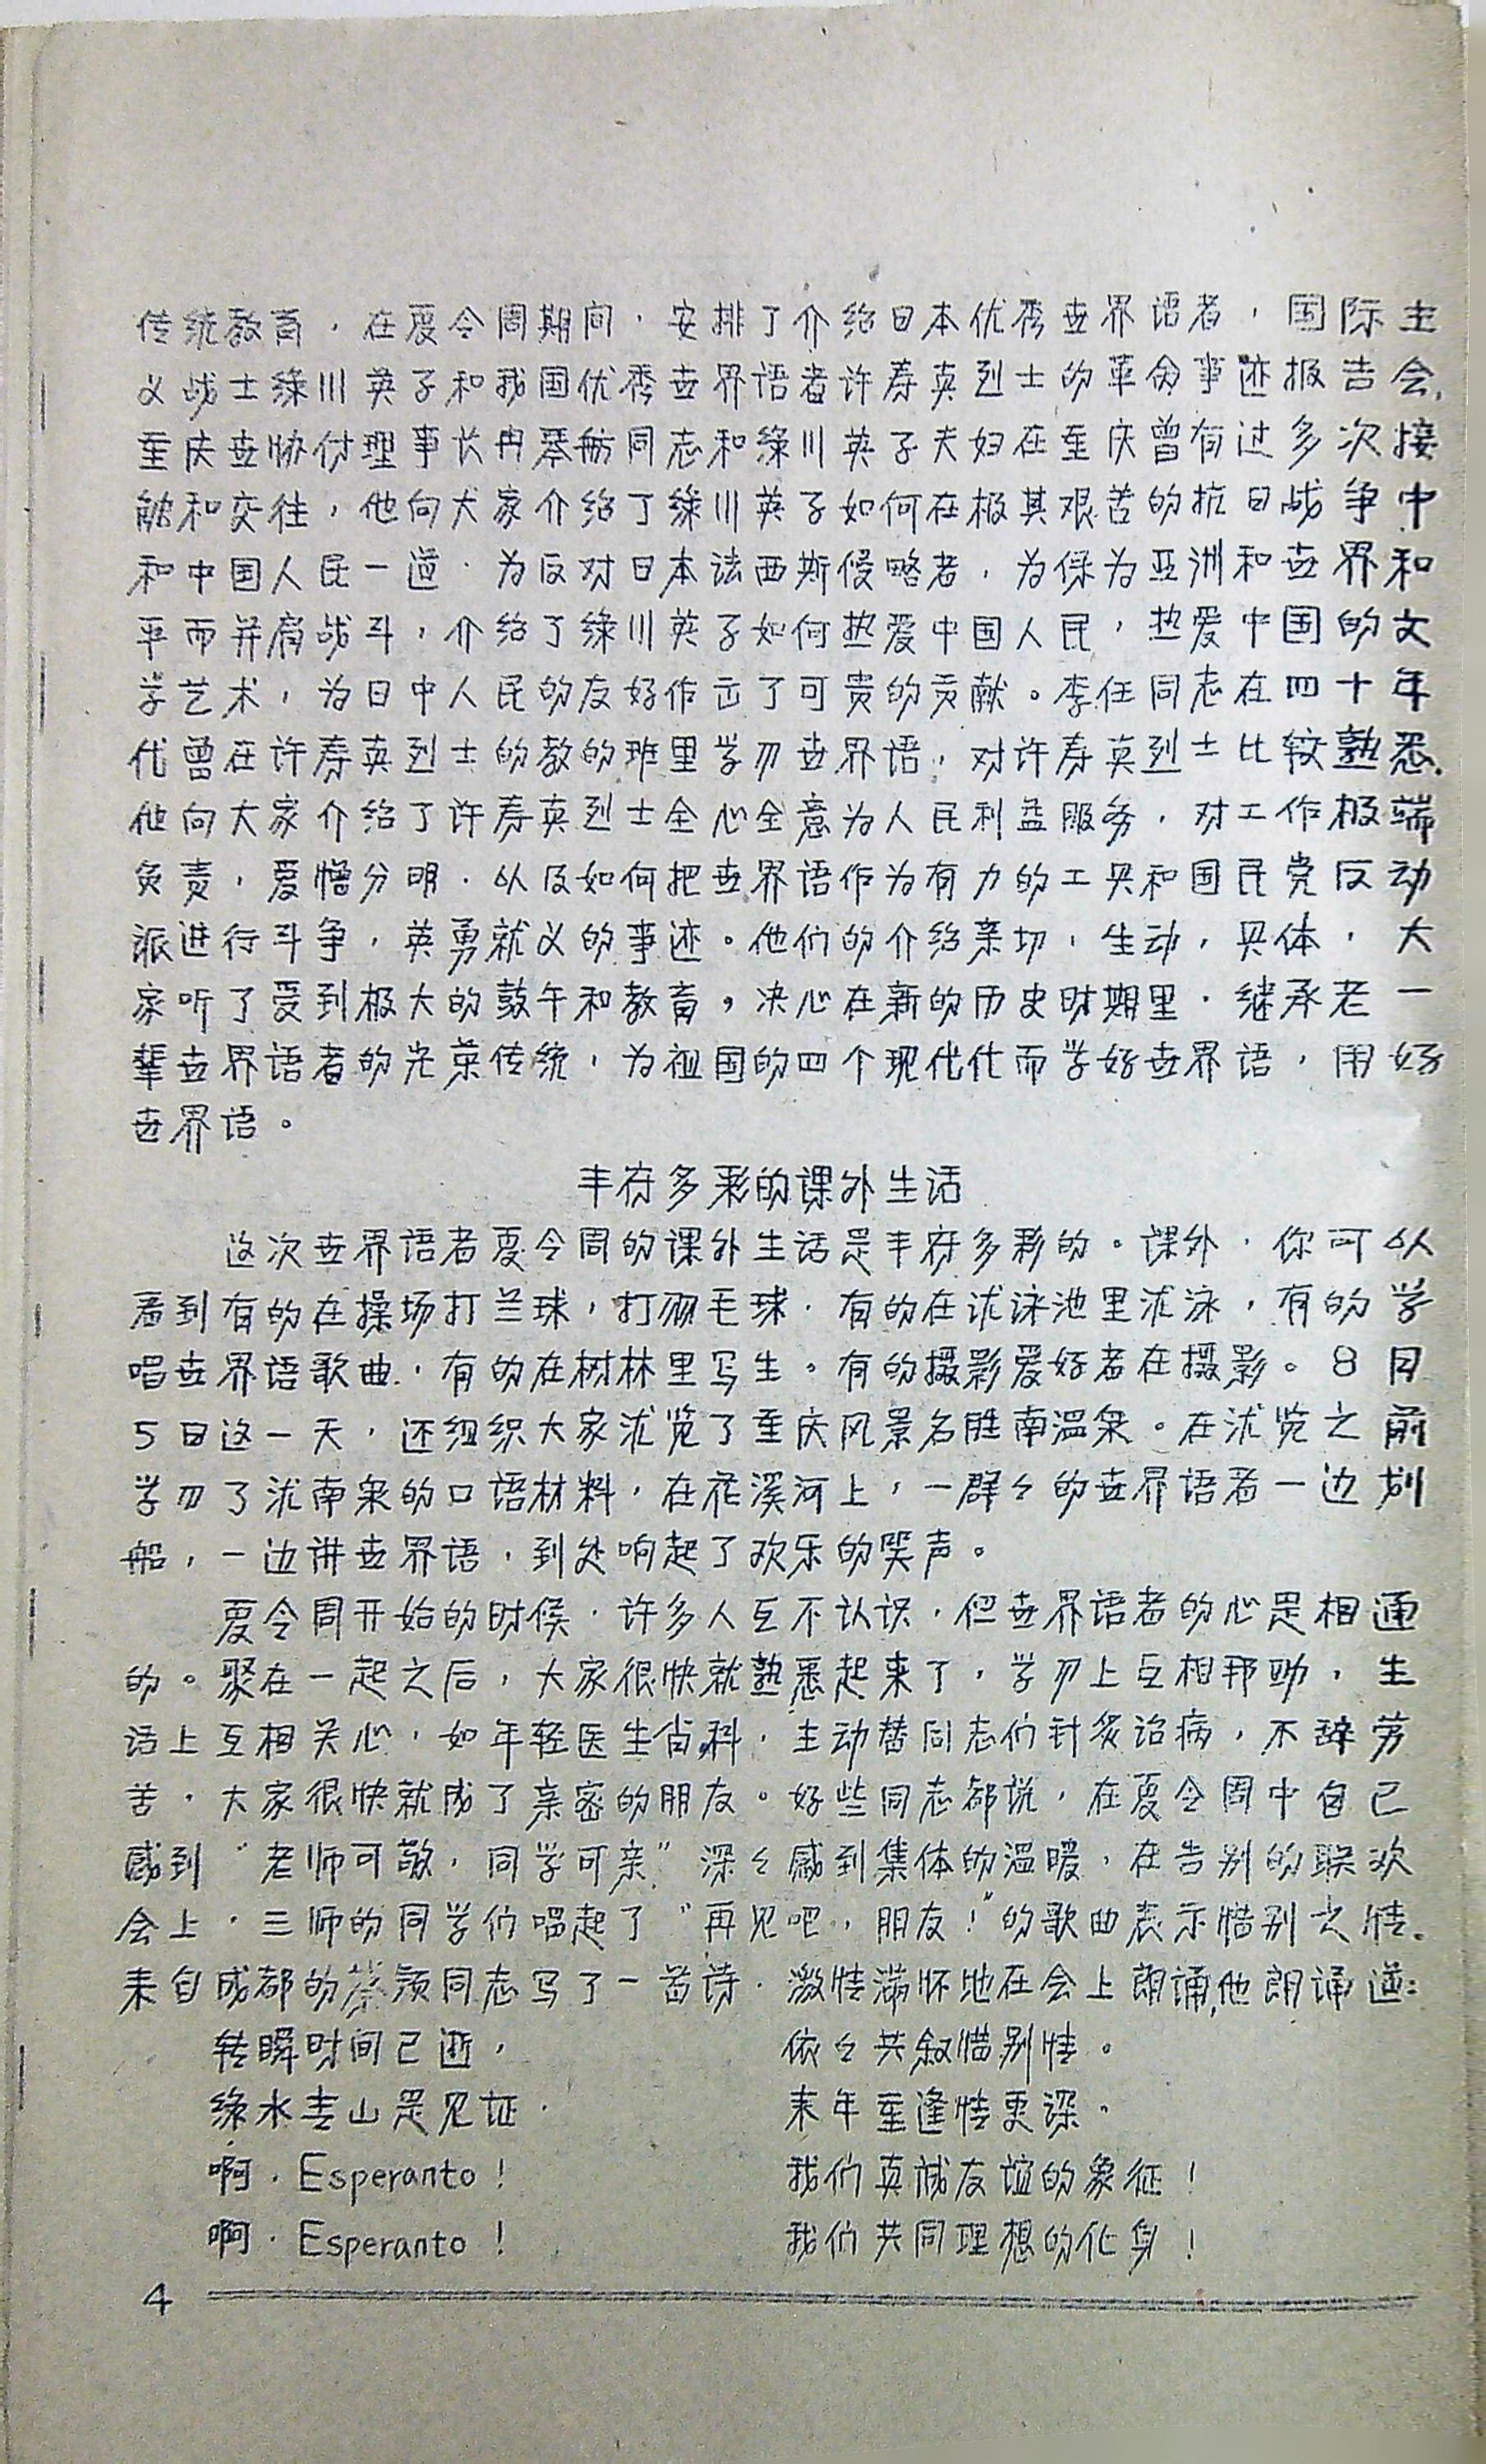 传统教育，在夏令周期间，安排了介绍日本优秀世界语者，国际主
义战士绿川英子和我国优秀世界语者许寿真烈士的革命事迹报告会，
重庆世协付理事长冉琴舫同志和绿川英子夫妇在重庆曾有过多次接
触和交往，他向大家介绍了绿川英子如何在极其艰苦的抗日战争中
和中国人民一道，为反对日本法西斯侵略者，为保为亚洲和世界和
平而并肩战斗，介绍了绿川英子如何热爱中国人民，热爱中国的文
学艺术，为日中人民的友好作出了可贵的贡献。李任同志在四十年
代曾在许寿真烈士的教的班里学习世界语，对许寿真烈士比较熟悉，
他向大家介绍了许寿真烈士全心全意为人民利益服务，对工作极端
负责，爱憎分明，以及如何把世界语作为有力的工具和国民党反动
派进行斗争，英勇就义的事迹。他们的介绍亲切，生动，具体，大
家听了受到极大的鼓午和教育，决心在新的历史时期里，继承老一
辈世界语者的光荣传统，为祖国的四个现代化而学好世界语，用好
世界语。
丰富多彩的课外生活
这次世界语者夏令周的课外生活是丰富多彩的。课外，你可以
看到有的在操场打兰球，打羽毛球，有的在游泳池里游泳，有的学
唱世界语歌曲，有的在树林里写生。有的摄影爱好者在摄影。8月
5日这一天，还组织大家游览了重庆风景名胜南温泉。在游览之前
学习了游南泉的口语材料，在花溪河上，一群々的世界语者一边划
船，一边讲世界语，到处响起了欢乐的笑声。
夏令周开始的时侯，许多人互不认识，但世界语者的心是相通
的。聚在一起之后，大家很快就熟悉起来了，学习上互相邦助，生
活上互相关心，如年轻医生肖科，主动替同志们针炙治病，不辞劳
苦，大家很快就成了亲密的朋友。好些同志都说，在夏令周中自己
感到“老师可敬，同学可亲”深々感到集体的温暖，在告别的联欢
会上，三师的同学们唱起了“再见吧，朋友！”的歌曲表示惜别之情。
来自成都的蔡颖同志写了一首诗，激情满怀地在会上朗诵，他朗诵道：
转瞬时间已逝，　依々共叙惜别情。
绿水青山是见证，　来年重逢情更深。
啊，Esperanto！　我们真诚友谊的象征！
啊，Esperanto！　我们共同理想的化身！
4